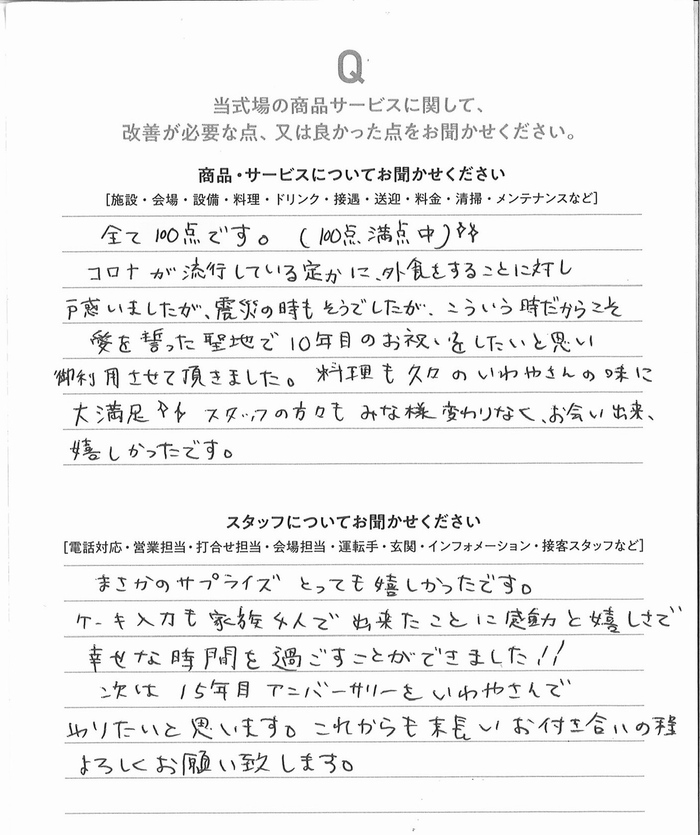 Q
当式場の商品サービスに関して、
改善が必要な点、又は良かった点をお聞かせください。
商品・サービスについてお聞かせください
[施設・会場・設備・料理・ドリンク・接遇・送迎・料金・清掃・メンテナンスなど]
全て100点です。(100点満点中)!!
コロナが流行している定かに、外食をすることに対し
戸惑いましたが、震災の時もそうでしたが、こういう時だからこそ
愛を誓った聖地で10年目のお祝いをしたいと思い
御利用させて頂きました。料理も久々のいわやさんの味に
大満足!! スタッフの方々もみな様変わりなく、お会い出来、
嬉しかったです。
スタッフについてお聞かせください
[電話対応・営業担当・打合せ担当・会場担当・運転手・玄関・インフォメーション・接客スタッフなど]
まさかのサプライズ とっても嬉しかったです。
ケーキ入刀も家族4人で出来たことに感動と嬉しさで
幸せな時間を過ごすことができました!!
次は15年目アニバーサリーをいわやさんで
やりたいと思います。これからも末長いお付き合いの程
よろしくお願い致します。